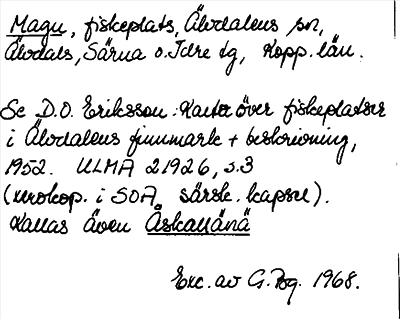 Magu, fiskeplats, Älvdalens sn,
Älvdals, Särna o. Idre tg, Kopp. län.
Se D.O. Eriksson: Karta över fiskeplatser
i Älvdalens finnmark + beskrivning,
1952. ULMA 21926, s.3
(xerokop. i SOA, särsk. kapsel).
Kallas även Åskallänä
Exc. av G. Pg. 1968.